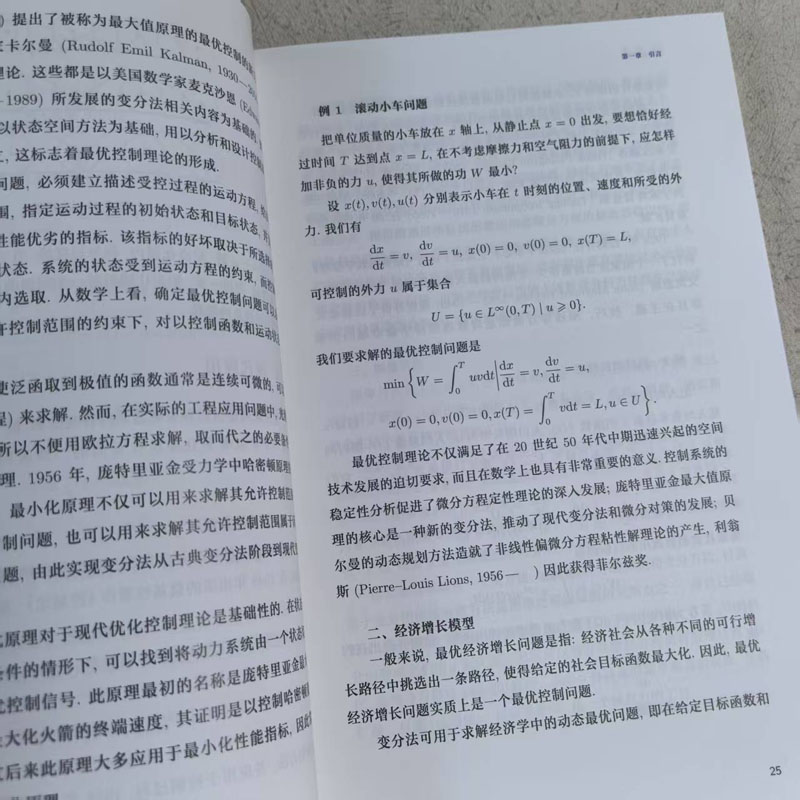 提出了被称为最大值原理的最优控制的
卡尔曼 (Rudolf Emil Kalman, 1930—
理论. 这些都是以美国数学家麦克沙恩
1989) 所发展的变分法相关内容为基础的
以状态空间方法为基础, 用以分析和设计控制
, 这标志着最优控制理论的形成.
问题, 必须建立描述受控过程的运动方程,
围, 指定运动过程的初始状态和目标状态,
性能优劣的指标. 该指标的好坏取决于所选择
状态. 系统的状态受到运动方程的约束,
内选取. 从数学上看, 确定最优控制问题可以
许控制范围的约束下, 对以控制函数和运动
使泛函取到极值的函数通常是连续可微的,
程) 来求解. 然而, 在实际的工程应用问题中,
所以不便用欧拉方程求解, 取而代之的必要
理. 1956 年, 庞特里亚金受力学中哈密顿原理
最小化原理不仅可以用来求解其允许控制
制问题, 也可以用来求解其允许控制范围属于
题, 由此实现变分法从古典变分法阶段到现代
原理对于现代优化控制理论是基础性的.
条件的情形下, 可以找到将动力系统由一个状态
优控制信号. 此原理最初的名称是庞特里亚金最
大化火箭的终端速度, 其证明是以控制哈密顿
后来此原理大多应用于最小化性能指标, 因此
第一章 引言
例 1 滚动小车问题
把单位质量的小车放在 x 轴上, 从静止点 x = 0 出发, 要想恰好经
过时间 T 达到点 x = L, 在不考虑摩擦力和空气阻力的前提下, 应怎样
加非负的力 u, 使得其所做的功 W 最小?
设 x(t), v(t), u(t) 分别表示小车在 t 时刻的位置、速度和所受的外
力. 我们有
dx/dt = v, dv/dt = u, x(0) = 0, v(0) = 0, x(T) = L,
可控制的外力 u 属于集合
U = {u ∈ L^∞(0, T) | u ⩾ 0}.
我们要求解的最优控制问题是
min{W = ∫_0^T uvdt | dx/dt = v, dv/dt = u,
x(0) = 0, v(0) = 0, x(T) = ∫_0^T vdt = L, u ∈ U}.
最优控制理论不仅满足了在 20 世纪 50 年代中期迅速兴起的空间
技术发展的迫切要求, 而且在数学上也具有非常重要的意义. 控制系统的
稳定性分析促进了微分方程定性理论的深入发展; 庞特里亚金最大值原
理的核心是一种新的变分法, 推动了现代变分法和微分对策的发展; 贝
尔曼的动态规划方法造就了非线性偏微分方程粘性解理论的产生, 利翁
斯 (Pierre–Louis Lions, 1956— ) 因此获得菲尔兹奖.
二、经济增长模型
一般来说, 最优经济增长问题是指: 经济社会从各种不同的可行增
长路径中挑选出一条路径, 使得给定的社会目标函数最大化. 因此, 最优
经济增长问题实质上是一个最优控制问题.
变分法可用于求解经济学中的动态最优问题, 即在给定目标函数和
25